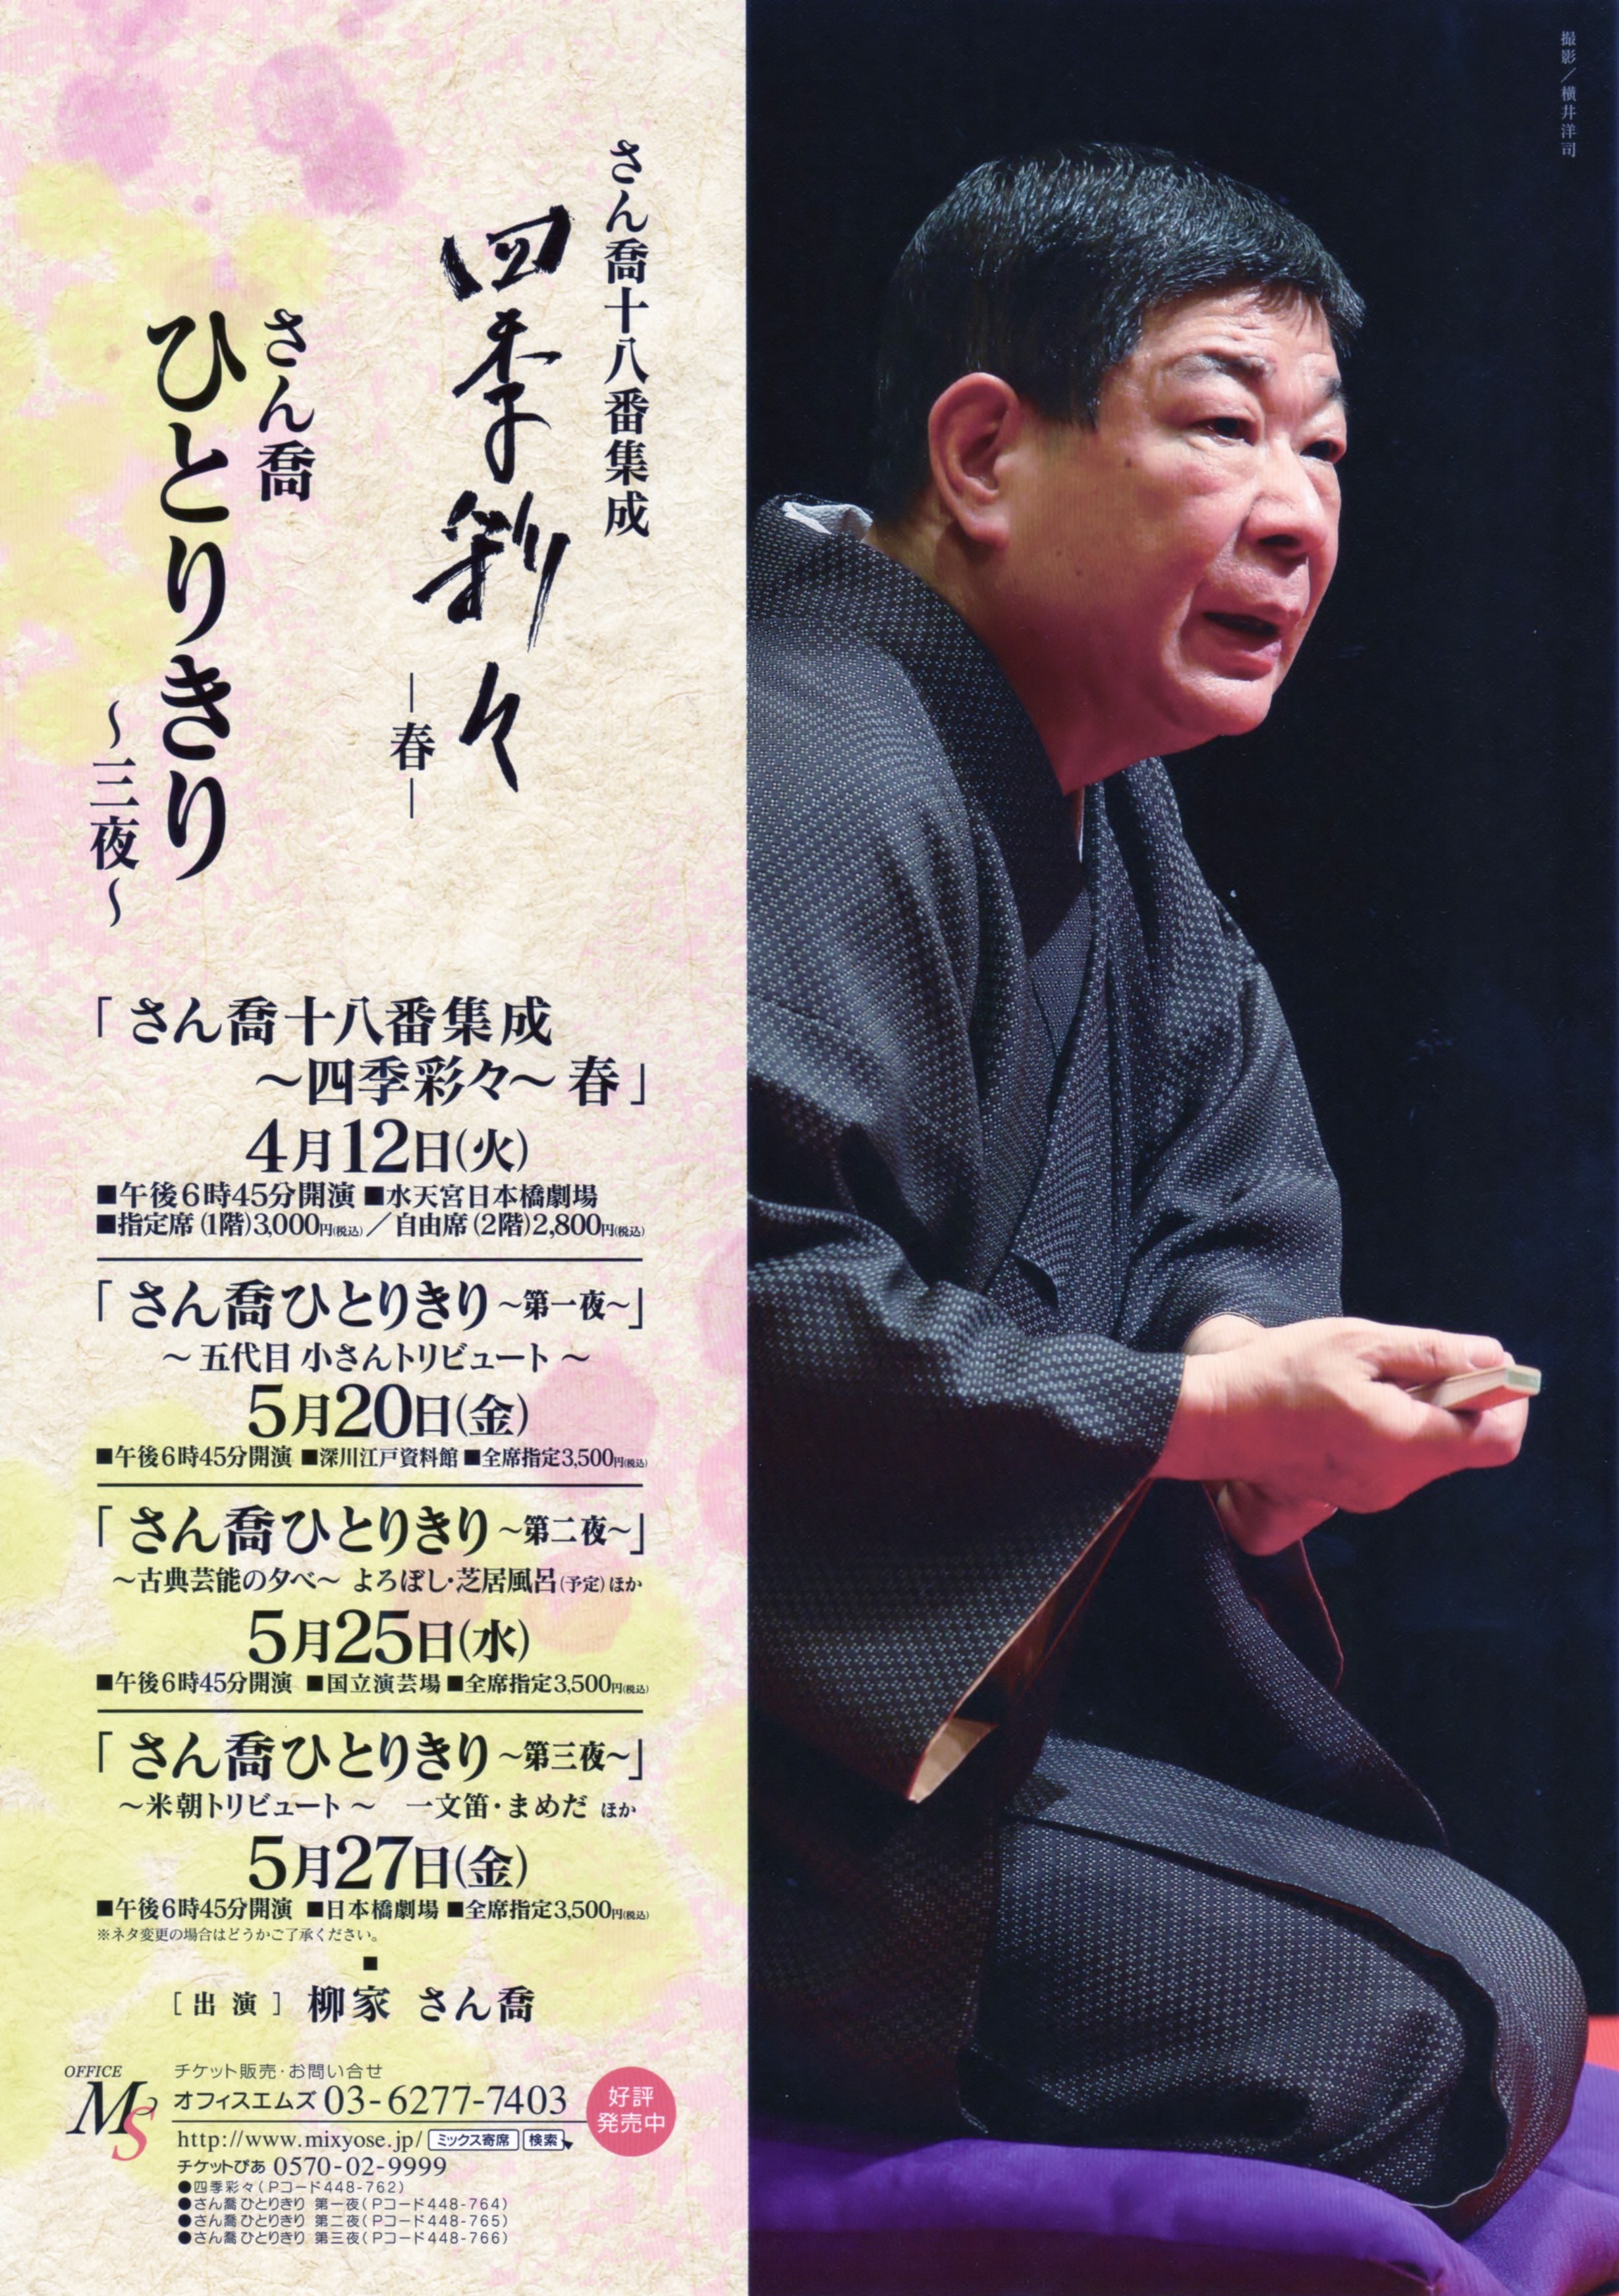 撮影／横井洋司
さん喬十八番集成
四季彩々
―春―
さん喬
ひとりきり
〜三夜〜
「さん喬十八番集成
〜四季彩々〜 春」
4月12日(火)
■午後6時45分開演 ■水天宮日本橋劇場
■指定席(1階)3,000円(税込)／自由席(2階)2,800円(税込)
「さん喬ひとりきり〜第一夜〜」
〜五代目 小さんトリビュート〜
5月20日(金)
■午後6時45分開演 ■深川江戸資料館 ■全席指定3,500円(税込)
「さん喬ひとりきり〜第二夜〜」
〜古典芸能の夕べ〜 よろぼし・芝居風呂(予定)ほか
5月25日(水)
■午後6時45分開演 ■国立演芸場 ■全席指定3,500円(税込)
「さん喬ひとりきり〜第三夜〜」
〜米朝トリビュート〜 一文笛・まめだ ほか
5月27日(金)
■午後6時45分開演 ■日本橋劇場 ■全席指定3,500円(税込)
※ネタ変更の場合はどうかご了承ください。
■
［出演］ 柳家 さん喬
OFFICE
M's
チケット販売・お問い合せ
オフィスエムズ 03-6277-7403
好評
発売中
http://www.mixyose.jp/ ミックス寄席 検索
チケットぴあ 0570-02-9999
●四季彩々(Pコード448-762)
●さん喬ひとりきり 第一夜(Pコード448-764)
●さん喬ひとりきり 第二夜(Pコード448-765)
●さん喬ひとりきり 第三夜(Pコード448-766)